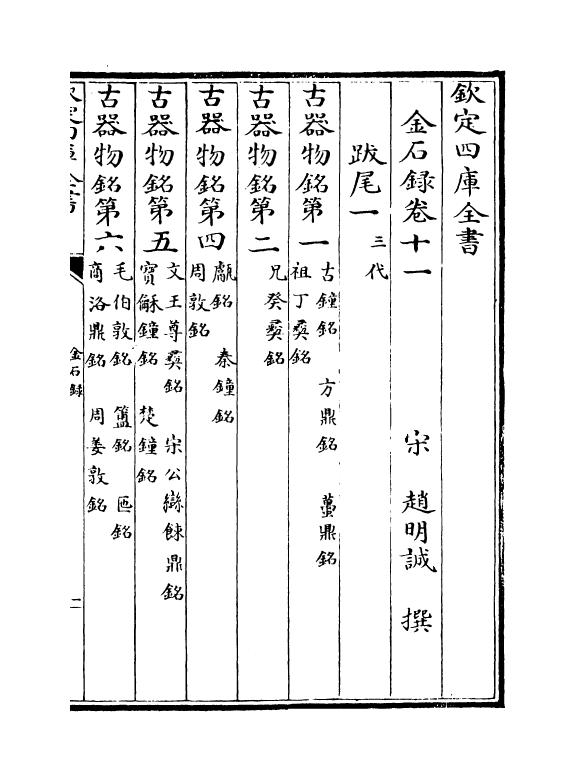 欽定四庫全書
金石録卷十一　宋　趙明誠　撰
跋尾一　三代
古器物銘第一　古鐘銘　方鼎銘　蠆鼎銘
祖丁彛銘
古器物銘第二
兄癸彛銘
古器物銘第四　甗銘　秦鐘銘
周敦銘
古器物銘第五　文王尊彛銘　宋公䜌餗鼎銘
寳龢鐘銘　楚鐘銘
古器物銘第六　毛伯敦銘　簠銘　匜銘
商洛鼎銘　周姜敦銘
欽定四庫全書
金石録